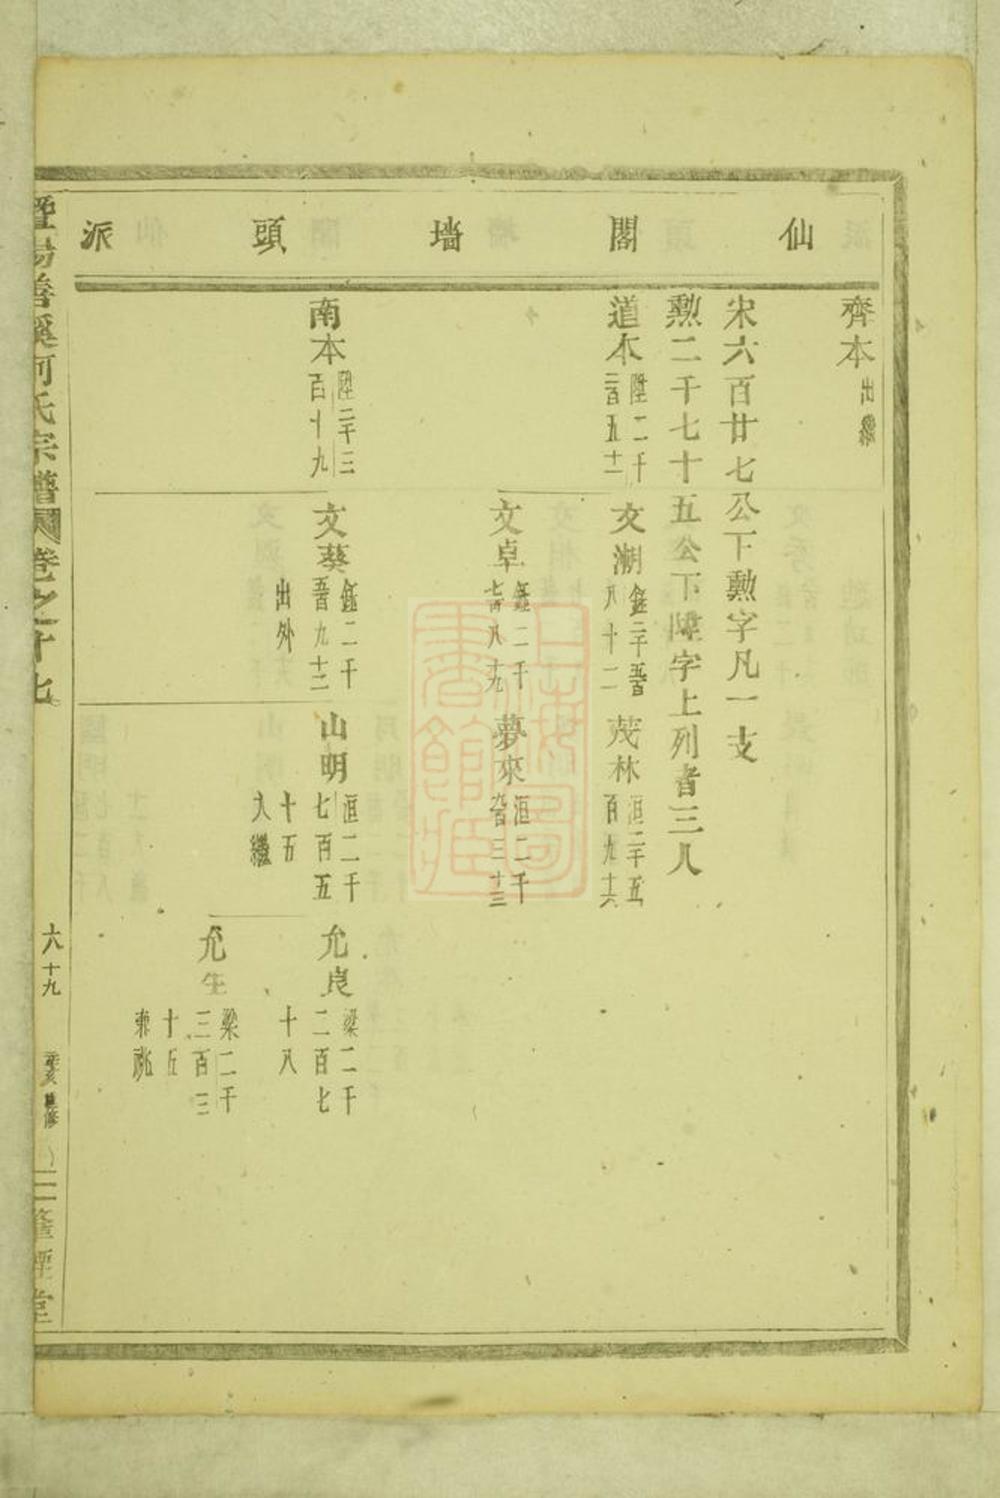 仙閣墻頭派
齊本
出繼
宋六百廿七公下勲字凡一支
勲二千七十五公下陞字上列者三人
道本
陞二千
三百五十二
文潮
鈺二千五百
八十二
茂林
洹二千五
百九十六
文卓
鈺二千
七百八十九
夢來
洹二千
九百三十三
南本
陞二千三
百十九
文葵
鈺二千
五百九十三
出外
山明
洹二千
七百五
十五
入繼
允良
梁二千
二百七
十八
允生
梁二千
三百三
十五
兼祧
暨陽善溪何氏宗譜
卷之十七
六十九
癸亥重修
三隆經堂
上海圖書館藏